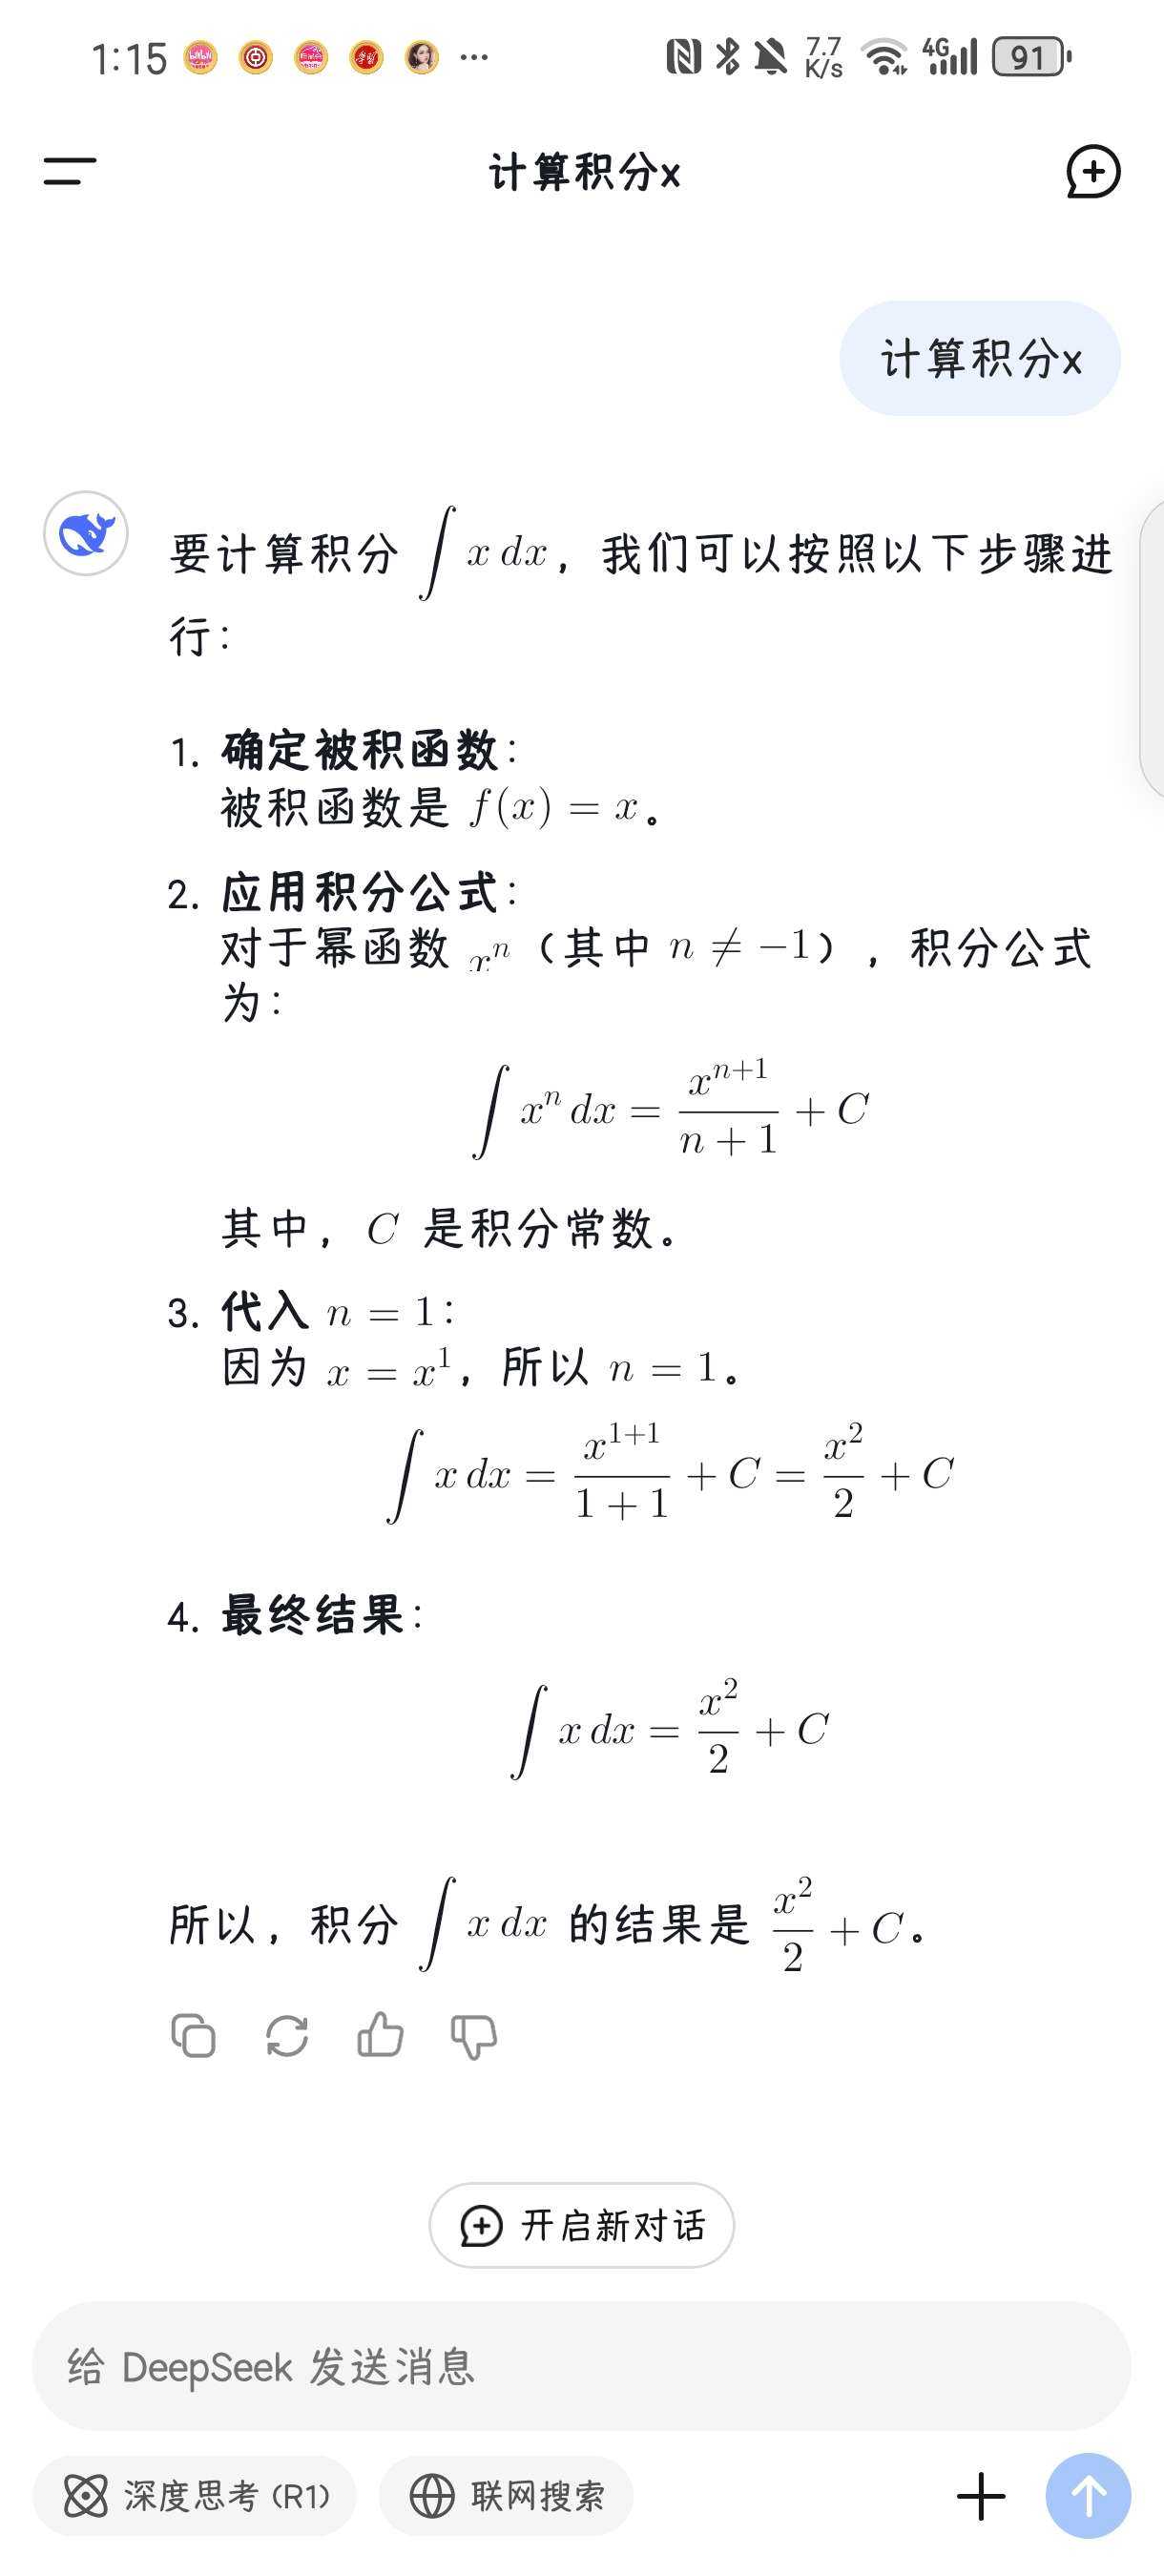 1:15 ... 7.7 K/s 4G 91
计算积分x
计算积分x
要计算积分 ∫ x dx，我们可以按照以下步骤进
行：
1. 确定被积函数：
被积函数是 f(x) = x。
2. 应用积分公式：
对于幂函数 xⁿ（其中 n ≠ −1），积分公式
为：
∫ xⁿ dx = xⁿ⁺¹/(n + 1) + C
其中，C 是积分常数。
3. 代入 n = 1：
因为 x = x¹，所以 n = 1。
∫ x dx = x¹⁺¹/(1 + 1) + C = x²/2 + C
4. 最终结果：
∫ x dx = x²/2 + C
所以，积分 ∫ x dx 的结果是 x²/2 + C。
开启新对话
给 DeepSeek 发送消息
深度思考 (R1) 联网搜索